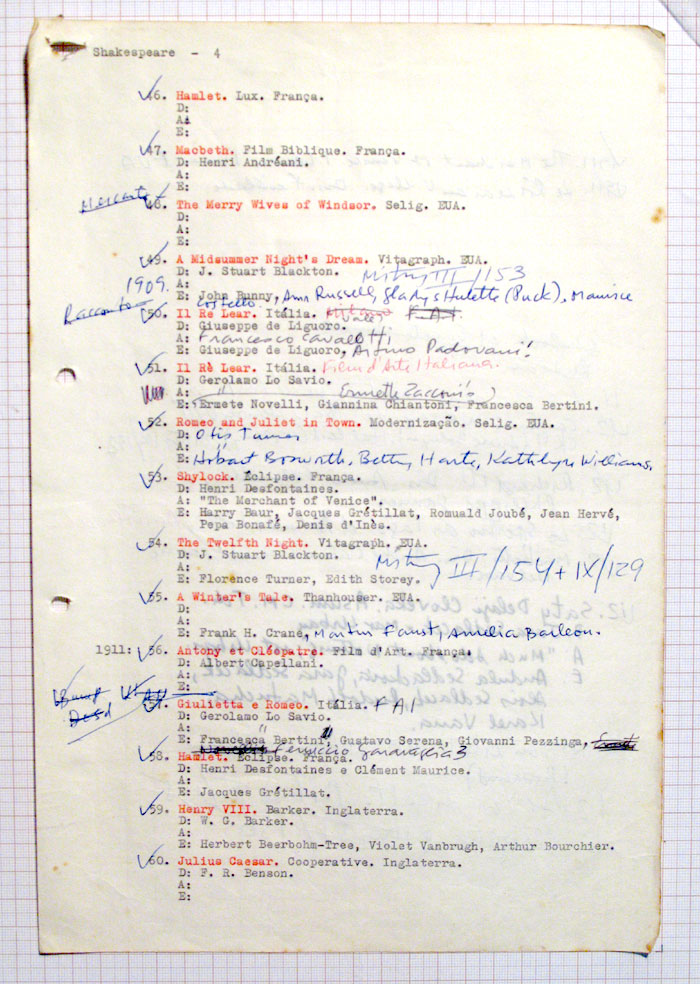 Shakespeare - 4
46. Hamlet. Lux. França.
D:
A:
E:
47. Macbeth. Film Biblique. França.
D: Henri Andréani.
A:
E:
48. The Merry Wives of Windsor. Selig. EUA.
D:
A:
E:
49. A Midsummer Night's Dream. Vitagraph. EUA.
D: J. Stuart Blackton.
A:
III/153
1909.
E: John Bunny, Ann Russell, Gladys Hulette (Puck), Maurice
Costello.
50. Il Re Lear. Itália. Milano F.A.I.
D: Giuseppe de Liguoro.
A: Francesco Cavallotti
E: Giuseppe de Liguoro, Arturo Padovani.
51. Il Rè Lear. Itália. Film d'Arte Italiana.
D: Gerolamo Lo Savio.
A: " Ermette Zacconis
E: Ermete Novelli, Giannina Chiantoni, Francesca Bertini.
52. Romeo and Juliet in Town. Modernização. Selig. EUA.
D: Otis Turner
A: "
E: Hobart Bosworth, Betty Harte, Kathlyn Williams,
53. Shylock. Éclipse. França.
D: Henri Desfontaines.
A: "The Merchant of Venice".
E: Harry Baur, Jacques Grétillat, Romuald Joubé, Jean Hervé,
Pepa Bonafé, Denis d'Inès.
54. The Twelfth Night. Vitagraph. EUA.
D: J. Stuart Blackton.
III/154 + IX/129
A:
E: Florence Turner, Edith Storey.
55. A Winter's Tale. Thanhouser. EUA.
D:
A:
E: Frank H. Crane, Martin Faust, Amelia Barleon.
1911: 56. Antony et Cléopatre. Film d'Art. França.
D: Albert Capellani.
A:
E:
57. Giulietta e Romeo. Itália. FAI
D: Gerolamo Lo Savio.
A: "
E: Francesca Bertini, Gustavo Serena, Giovanni Pezzinga,
58. Hamlet. Eclipse. França.
D: Henri Desfontaines e Clément Maurice.
A:
E: Jacques Grétillat.
59. Henry VIII. Barker. Inglaterra.
D: W. G. Barker.
A:
E: Herbert Beerbohm-Tree, Violet Vanbrugh, Arthur Bourchier.
60. Julius Caesar. Cooperative. Inglaterra.
D: F. R. Benson.
A:
E: